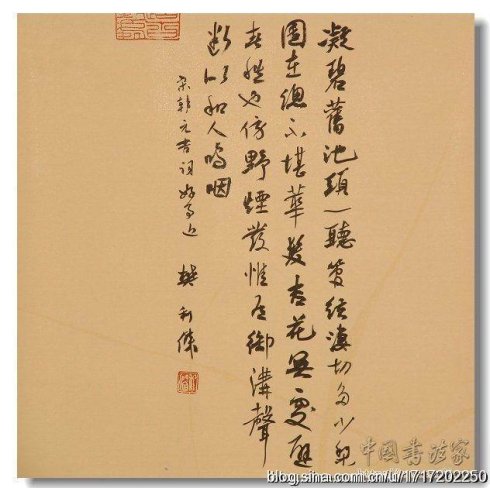 凝碧舊池頭一聽管絃凄切多少梨
園在總不堪華髮杏花無處避
春愁也傍野煙發惟有御溝聲
斷似知人嗚咽
宋韓元吉詞好事近 樊利傑
中国书法家
blog.sina.com.cn/u/1717202250